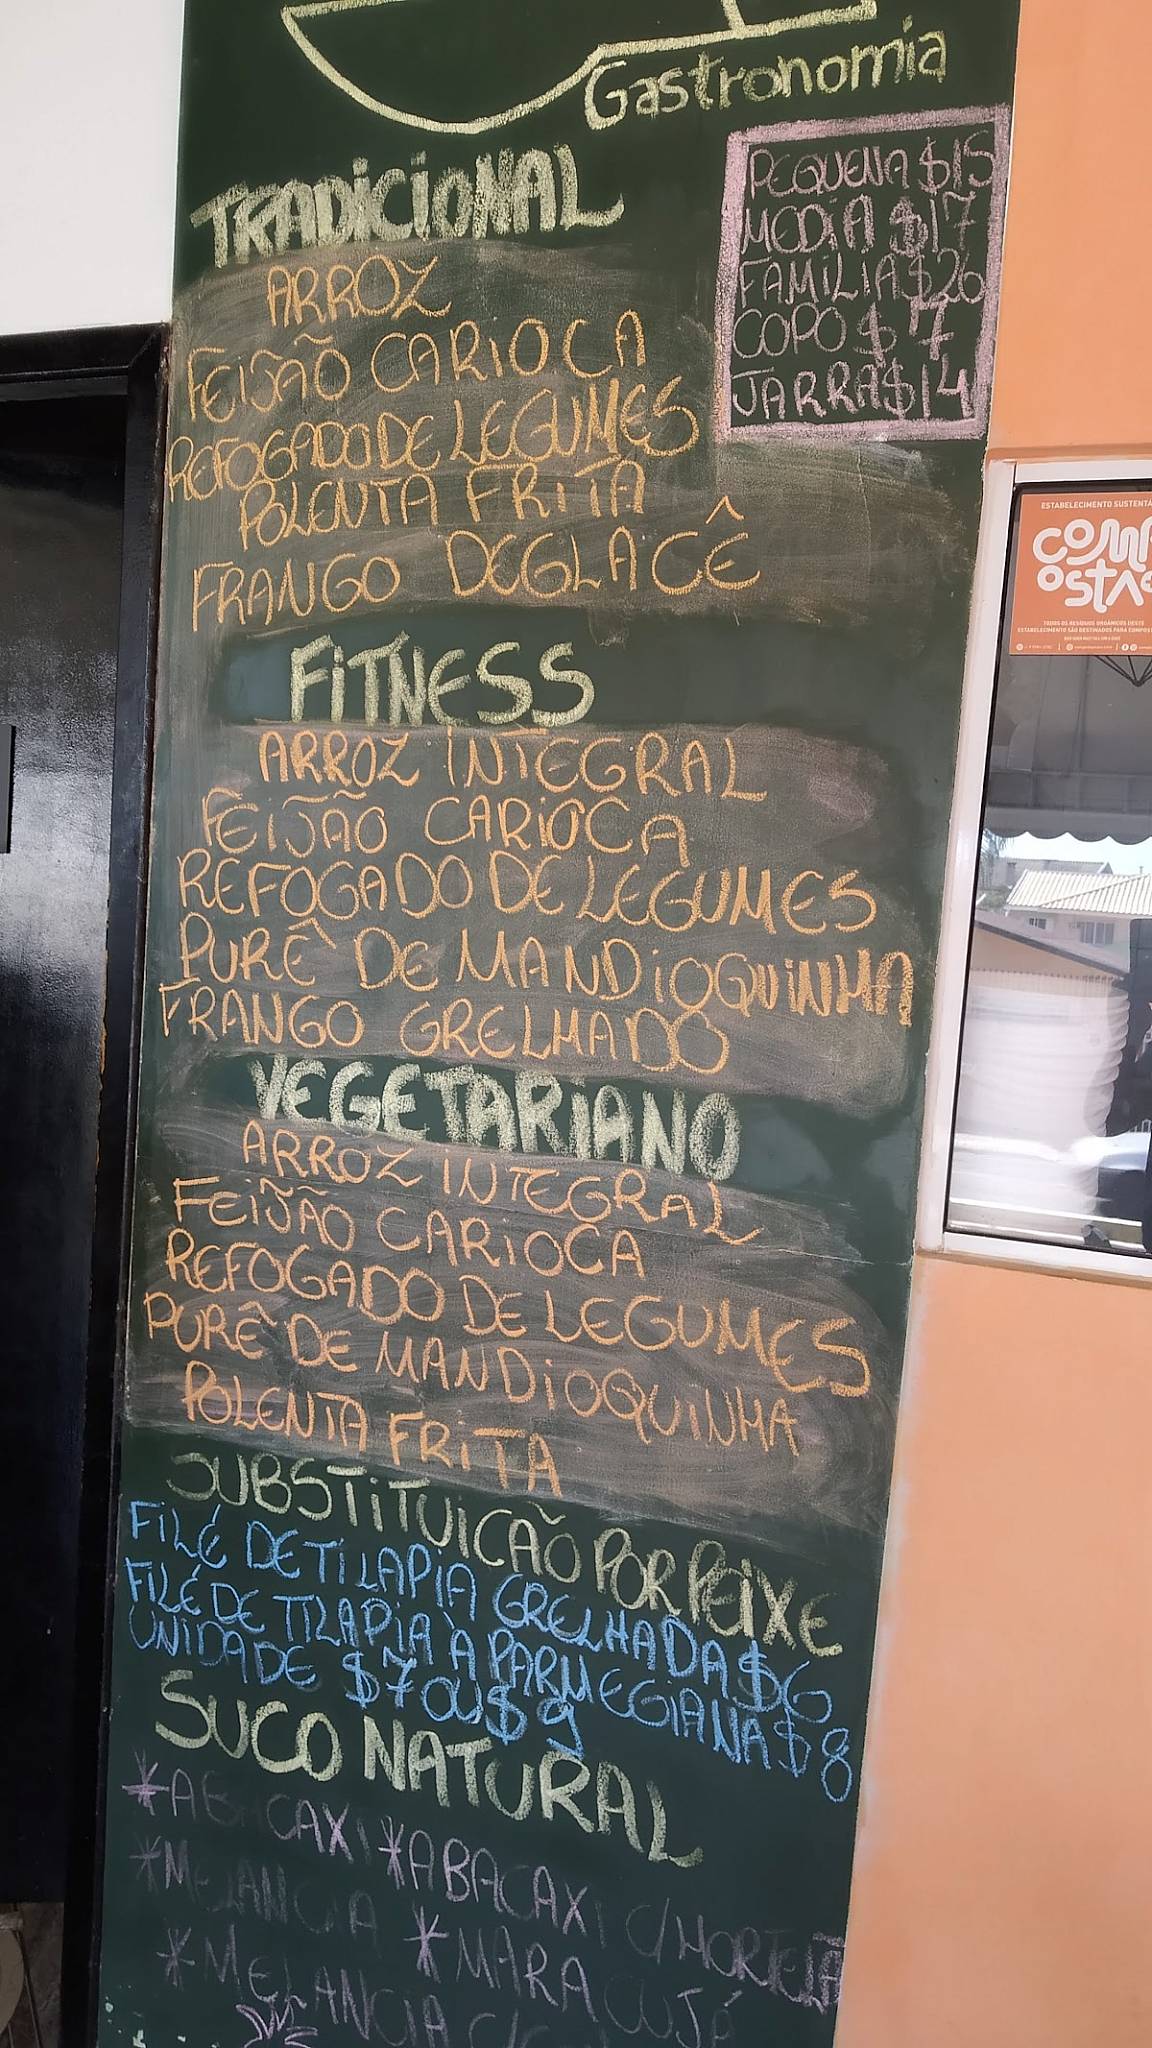 Gastronomia
PEQUENA $15
MEDIA $17
FAMILIA $26
COPO $7
JARRA $14
TRADICIONAL
ARROZ
FEIJÃO CARIOCA
REFOGADO DE LEGUMES
POLENTA FRITA
FRANGO DEGLACÊ
FITNESS
ARROZ INTEGRAL
FEIJÃO CARIOCA
REFOGADO DE LEGUMES
PURÊ DE MANDIOQUINHA
FRANGO GRELHADO
VEGETARIANO
ARROZ INTEGRAL
FEIJÃO CARIOCA
REFOGADO DE LEGUMES
PURÊ DE MANDIOQUINHA
POLENTA FRITA
SUBSTITUICÃO POR PEIXE
FILÉ DE TILAPIA GRELHADA $6
FILÉ DE TILAPIA À PARMEGIANA $8
UNIDADE $7 OU $9
SUCO NATURAL
*ABACAXI *ABACAXI C/HORTELÃ
*MELANCIA *MARACUJÁ
*MELANCIA C/
ESTABELECIMENTO SUSTENTÁ
COMP
OSTAE
TODOS OS RESÍDUOS ORGÂNICOS DESTE
ESTABELECIMENTO SÃO DESTINADOS PARA COMPOST